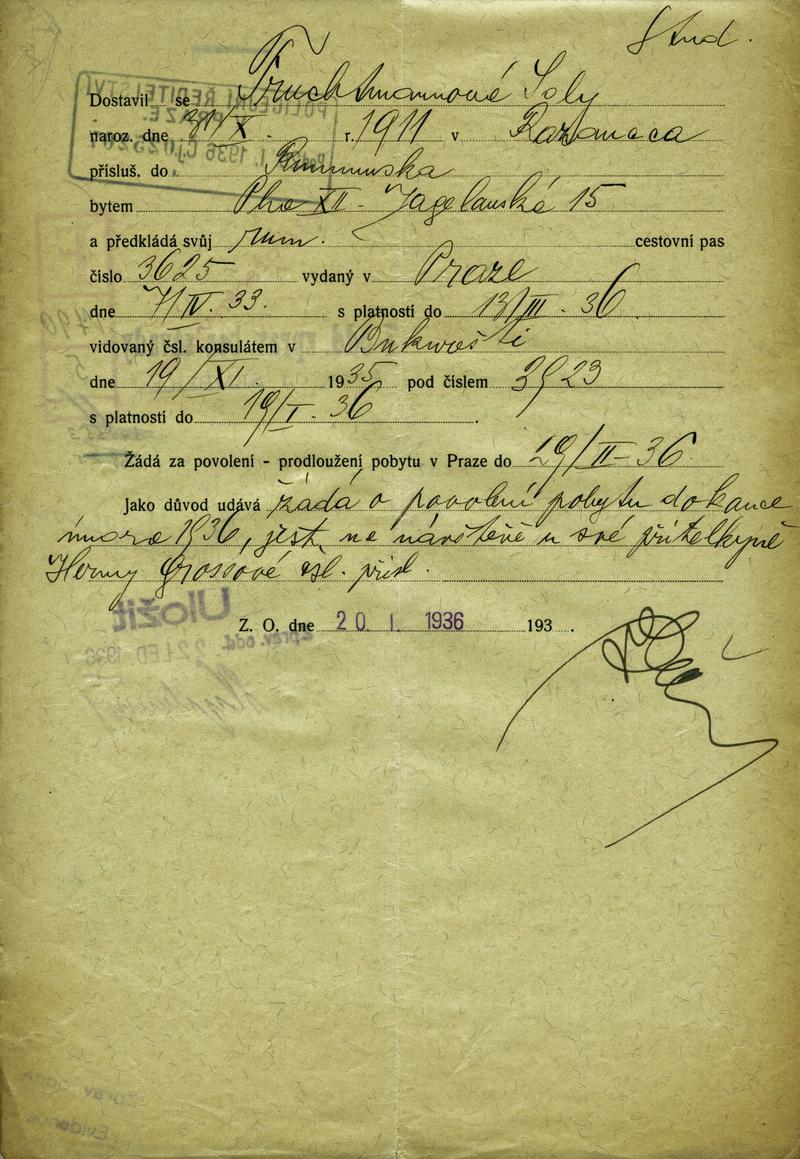 Stud.
Dostavil se Fruchtmannové Soly
naroz. dne 31/X. r. 1911 v
přísluš. do Rumunska
bytem Pha XII - Jagelanské 15
a předkládá svůj rum. cestovní pas
číslo 3625 vydaný v Praze
dne 7/IV. 33. s platností do 13/III - 36
vidovaný čsl. konsulátem v Bukurešti
dne 19/XI. 1935 pod číslem 3923
s platností do 19/I - 36
Žádá za povolení - prodloužení pobytu v Praze do 29/II - 36
Jako důvod udává žádá o povolení pobytu do konce
února 1936, jest na návštěvě u své přítelkyně
Grossové čsl. přísl.
Z. O. dne 20. I. 1936 193 .
Uložit